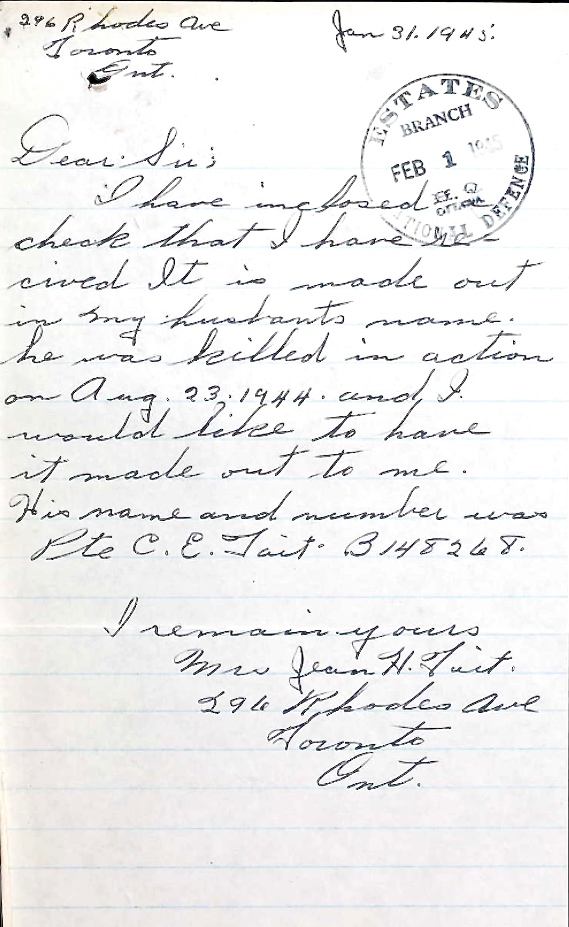 296 Rhodes Ave
Toronto
Ont.
Jan 31. 1945.
ESTATES
BRANCH
FEB 1 1945
OTTAWA
NATIONAL DEFENCE
Dear Sir;
I have inclosed
check that I have re-
cived It is made out
in my husbants name.
he was killed in action
on Aug. 23. 1944. and I
would like to have
it made out to me.
His name and number was
Pte C. E. Tait. B148268.
I remain yours
Mrs Jean H. Tait.
296 Rhodes Ave
Toronto
Ont.